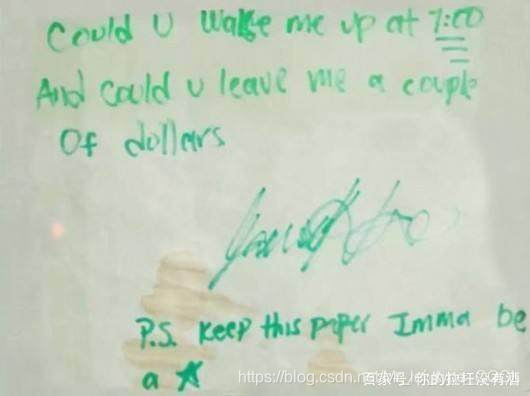 Could U wake me up at 7:00
And could u leave me a couple
Of dollars
P.S. Keep this paper Imma be
a ★
https://blog.csdn.net/
百家号/你的拉狂没有酒